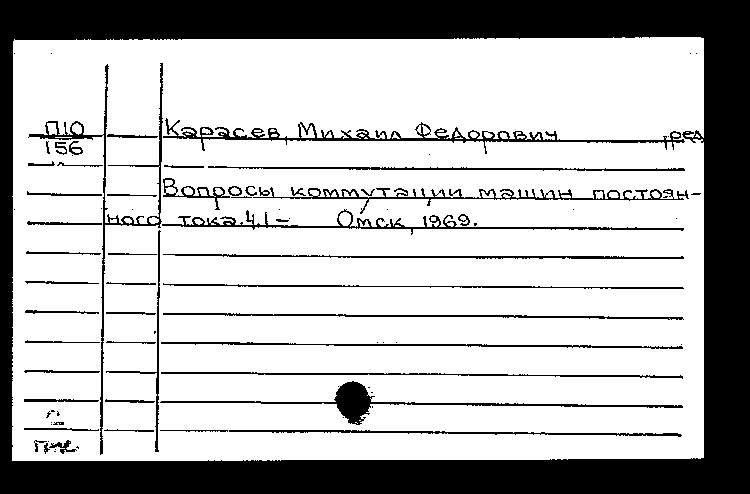 П10 Карасев, Михаил Федорович, ред
156
Вопросы коммутации машин постоян-
ного тока. Ч.1 – Омск, 1969.